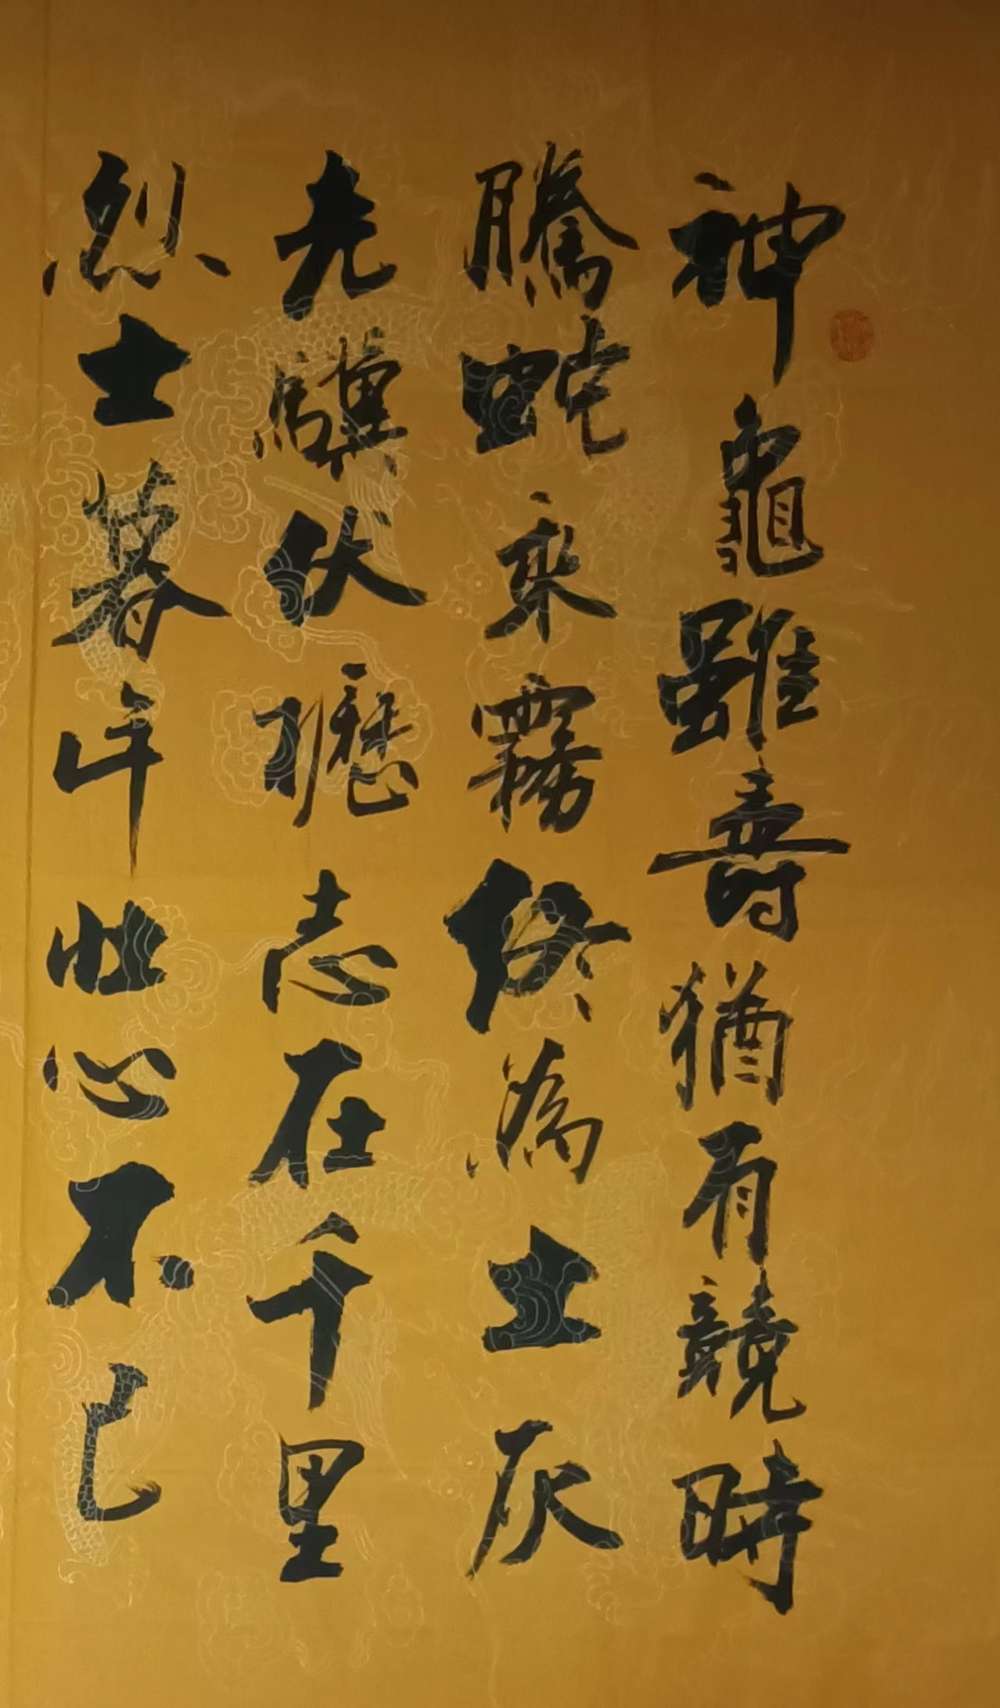 神龜雖壽猶有競時
騰蛇乘霧終為土灰
老驥伏櫪志在千里
烈士暮年壯心不已